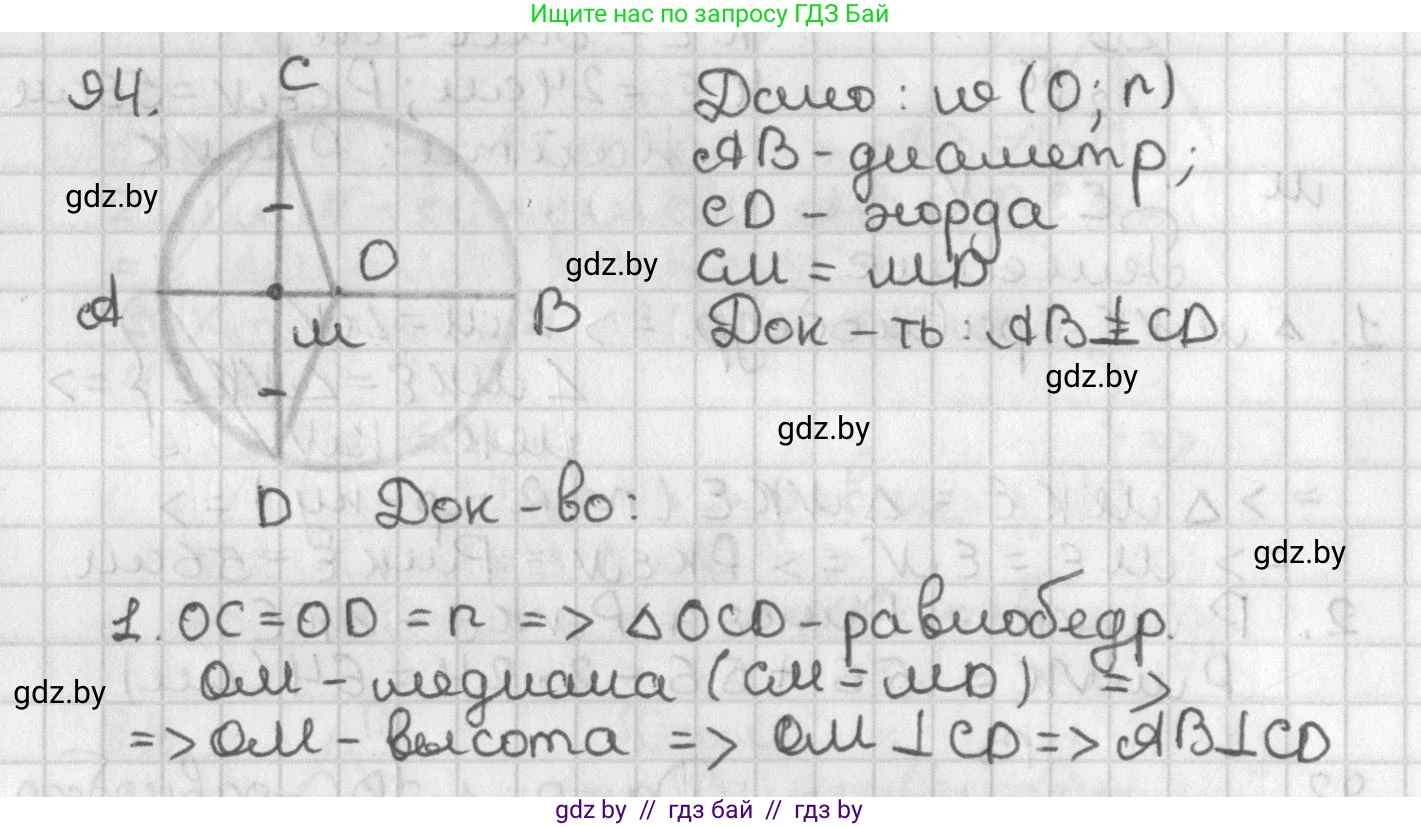 Ищите нас по запросу ГДЗ Бай
94.
C
Дано: ω (O; r)
AB - диаметр;
gdz.by
CD - хорда
O
gdz.by
CM = MD
A
M
B
Док - ть: AB ⊥ CD
gdz.by
gdz.by
D
Док - во:
gdz.by
1. OC = OD = r => △ OCD - равнобедр.
OM - медиана (CM = MD) =>
gdz.by
=> OM - высота => OM ⊥ CD => AB ⊥ CD
gdz by // гдз бай // гдз by